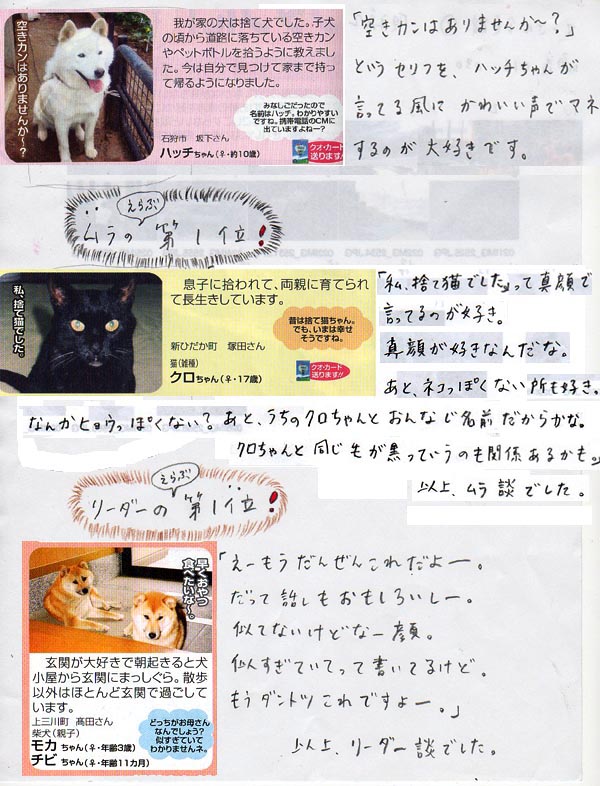 空きカンはありませんか〜？
我が家の犬は捨て犬でした。子犬
の頃から道路に落ちている空きカン
やペットボトルを拾うように教えまし
た。今は自分で見つけて家まで持っ
て帰るようになりました。
みなしごだったので
名前はハッチ。わかりやすい
ですね。携帯電話のCMに
出ていますよねー？
石狩市 坂下さん
ハッチちゃん（♀・約10歳）
クオ・カード
送ります!!
「空きカンはありませんか〜？」
というセリフを、ハッチちゃんが
言ってる風に かわいい声でマネ
するのが大好きです。
えらぶ
ムラの第1位！
私、捨て猫でした。
息子に拾われて、両親に育てられ
て長生きしています。
昔は捨て猫ちゃん。
でも、いまは幸せ
そうですね。
新ひだか町 塚田さん
猫（雑種）
クロちゃん（♀・17歳）
クオ・カード
送ります!!
「私、捨て猫でした」って真顔で
言ってるのが好き。
真顔が好きなんだな。
あと、ネコっぽくない所も好き。
なんかヒョウっぽくない？あと、うちのクロちゃんとおんなじ名前だからかな。
クロちゃんと同じ毛が黒っていうのも関係あるかも。」
以上、ムラ談でした。
えらぶ
リーダーの第1位！
早くおやつ
食べたいな〜。
玄関が大好きで朝起きると犬
小屋から玄関にまっしぐら。散歩
以外はほとんど玄関で過ごしてい
ます。
上三川町 髙田さん
柴犬（親子）
モカちゃん（♀・年齢3歳）
チビちゃん（♀・年齢11カ月）
どっちがお母さん
なんでしょう？
似すぎていて
わかりませんネ。
「えーもうだんぜんこれだよー。
だって話しもおもしろいしー。
似てないけどなー顔。
似すぎていてって書いてるけど。
もうダントツこれですよー。」
以上、リーダー談でした。